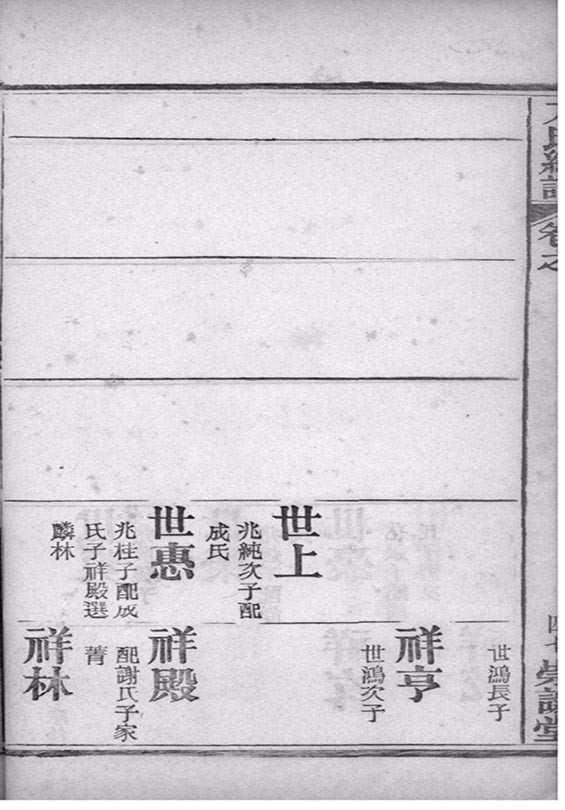 卷之
世上
兆純次子配
成氏
世惠
兆桂子配成
氏子祥殿選
麟林
世鴻長子
祥亨
世鴻次子
祥殿
配謝氏子家
菁
祥林